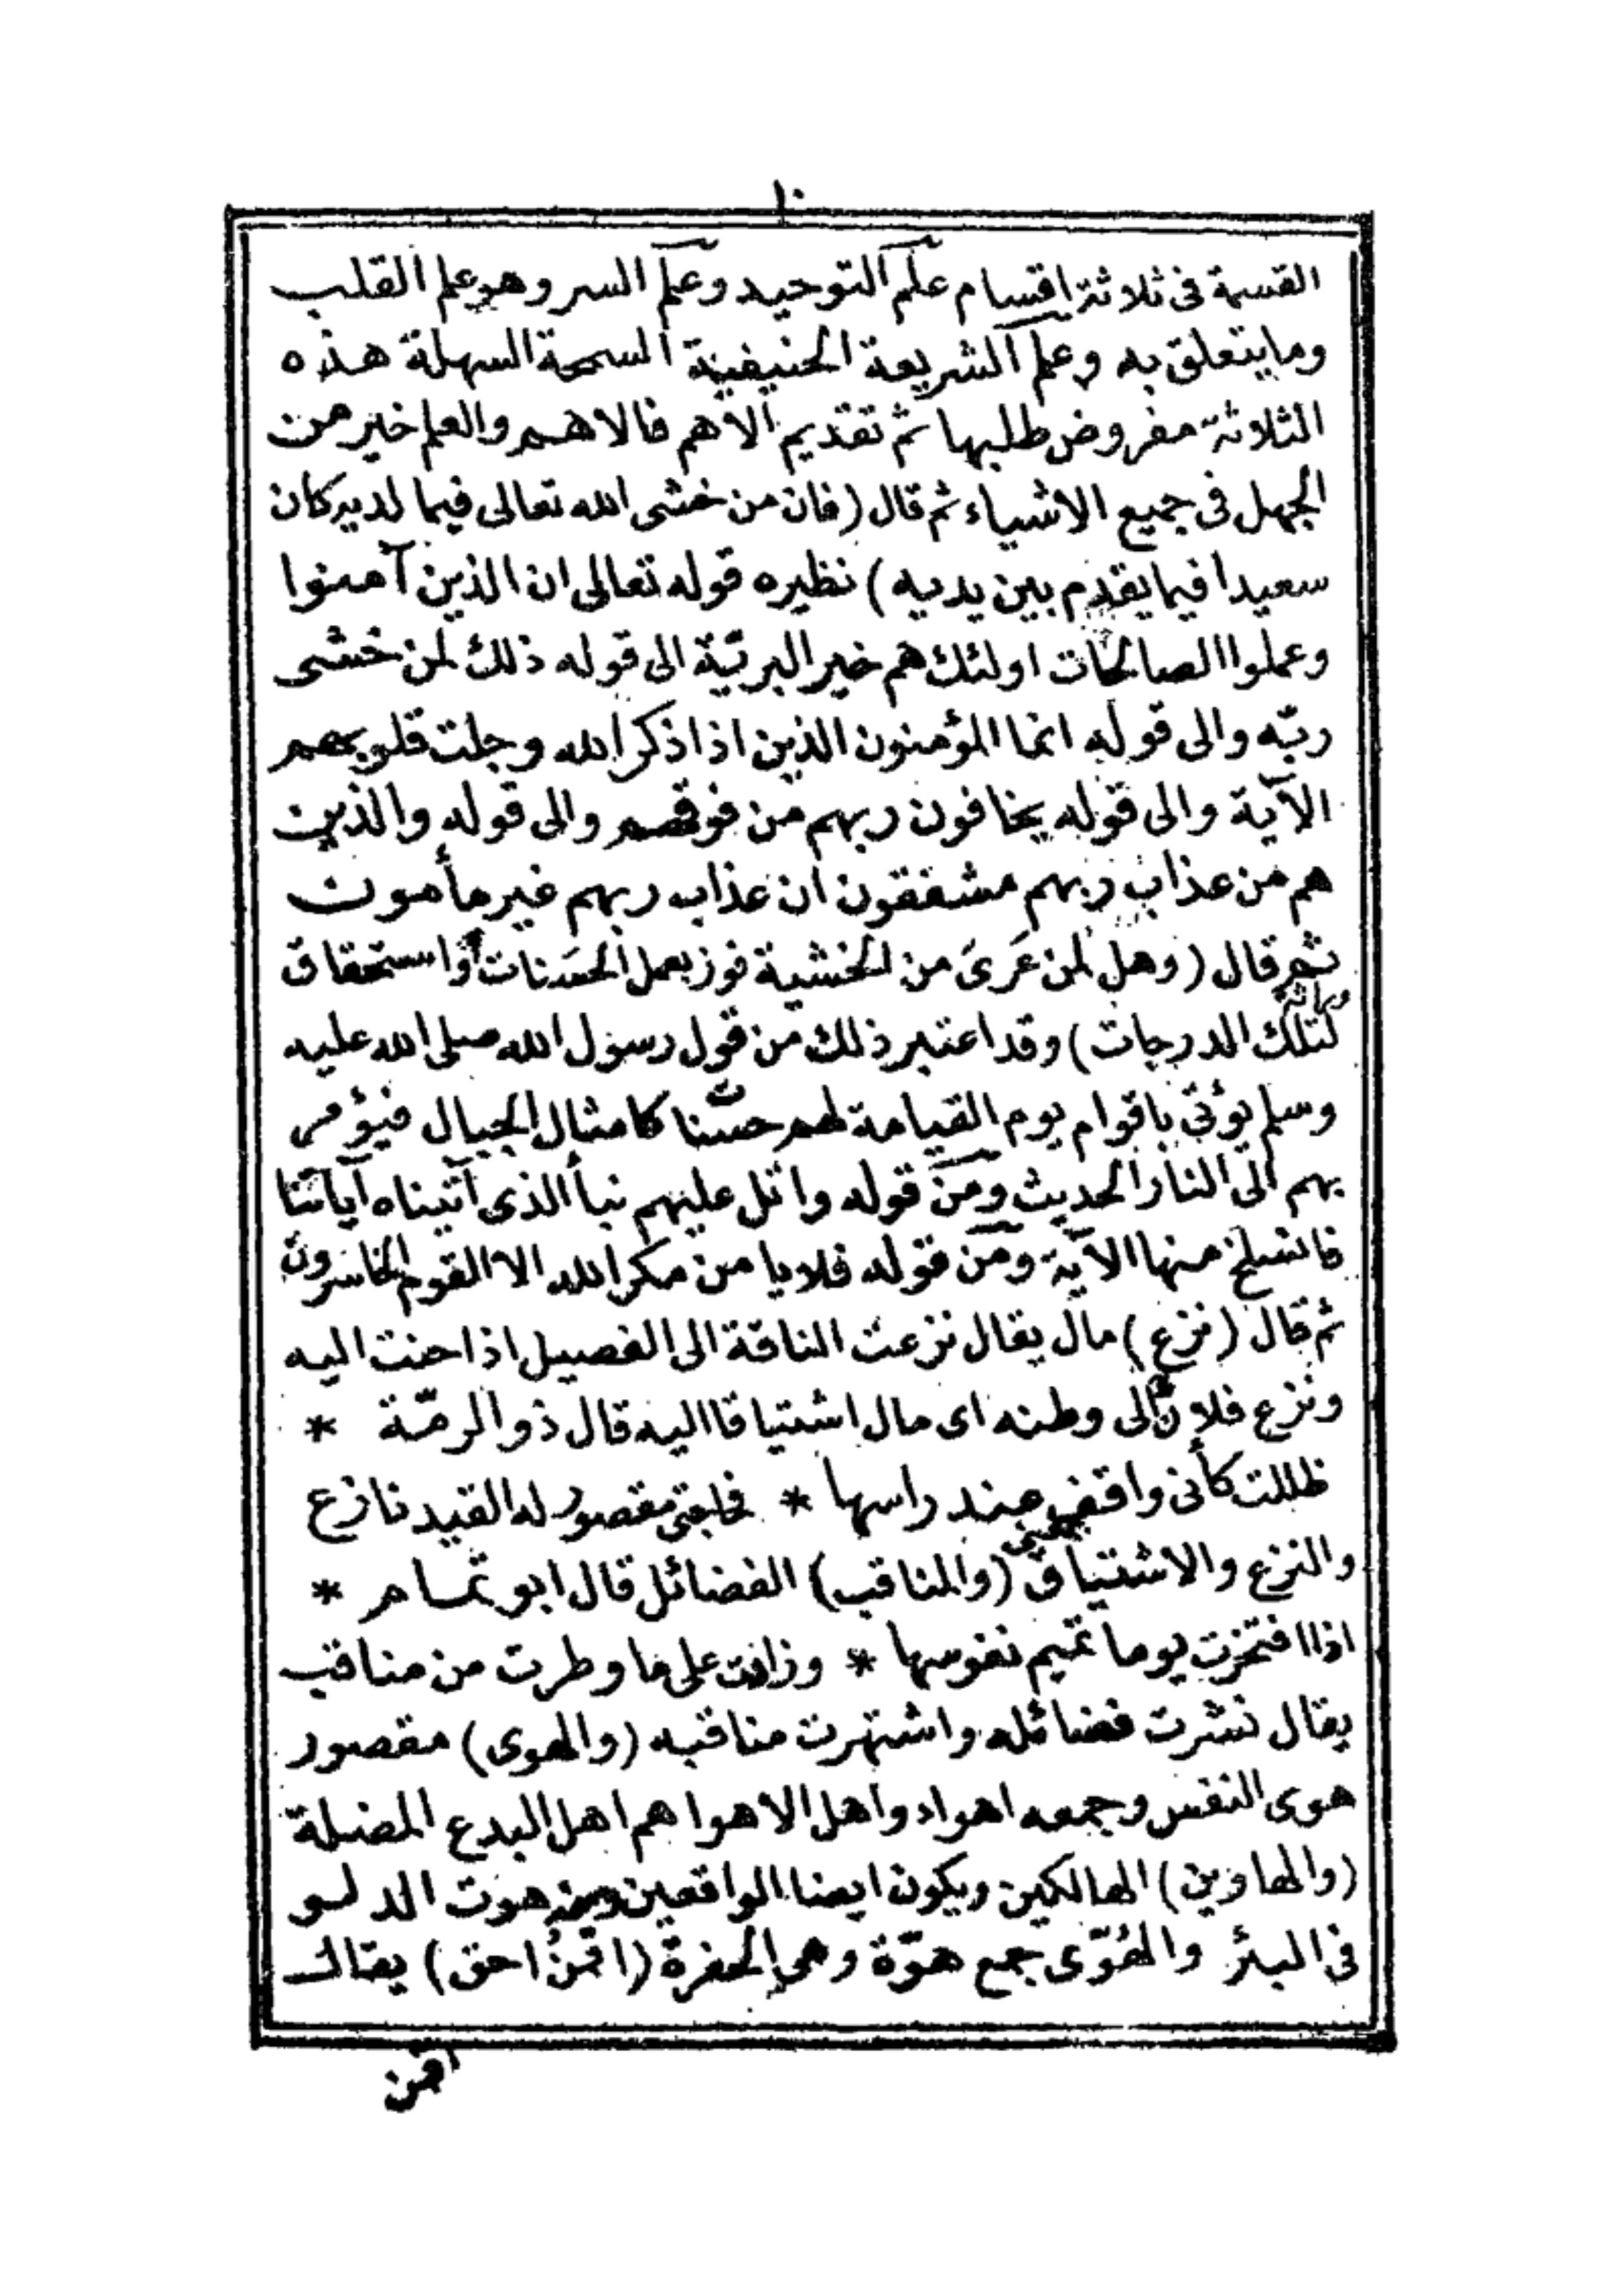 ١٠
القسمة فى ثلاثة اقسام علم التوحيد وعلم السر وهو علم القلب
وما يتعلق به وعلم الشريعة الحنيفية السمحة السهلة هذه
الثلاثة مفروض طلبها ثم تقديم الاهم فالاهم والعلم خير من
الجهل فى جميع الاشياء ثم قال (فان من خشى الله تعالى فيما لديه كان
سعيدا فيما يقدم بين يديه) نظيره قوله تعالى ان الذين آمنوا
وعملوا الصالحات اولئك هم خير البريّة الى قوله ذلك لمن خشى
ربّه والى قوله انما المؤمنون الذين اذا ذكر الله وجلت قلوبهم
الآية والى قوله يخافون ربهم من فوقهم والى قوله والذين
هم من عذاب ربهم مشفقون ان عذاب ربهم غير مأمون
ثم قال (وهل لمن عَرىَ من الخشية فوز بعمل الحسَنات أو استحقاق
لتلك الدرجات) وقد اعتبر ذلك من قول رسول الله صلى الله عليه
وسلم يؤتى باقوام يوم القيامة لهم حسنات كامثال الجبال فيؤمر
بهم الى النار الحديث ومن قوله واتل عليهم نبأ الذى آتيناه آياتنا
فانسلخ منها الآية ومن قوله فلا يا من مكر الله الا القوم الخاسرون
ثم قال (نزع) مال يقال نزعت الناقة الى الفصيل اذا حنت اليه
ونزع فلانٌ الى وطنه اى مال اشتياقا اليه قال ذو الرمّة *
ظللت كأنى واقف عند راسها * مقصور له القيد نازع
والنزع والاشتياق بمعنى (والمناقب) الفضائل قال ابو تمام *
اذا افتخرت يوما تميم نفوسها * وزادت على ما وطرت من مناقب
يقال نشرت فضائله واشتهرت مناقبه (والهوى) مقصور
هوى النفس وجمعه اهواء واهل الاهوا هم اهل البدع المضلة
(والهاوين) الهالكين ويكون ايضا الواقعين ومنه هوت الدلو
فى البئر والهُوّى جمع هوّة وهى الحفرة (اقمنُ احق) يقال
اقمن